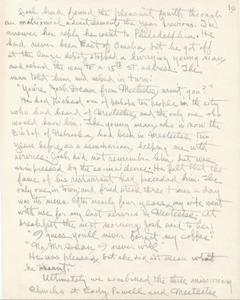 10
Josh had found the pleasant youth through
an matrimonial advertisement the year previous. In
answer her reply he went to Philadelphia. He
had never been East of Omaha, but he got off
at the large depot, stopped a hurrying young man
and asked the way to a 15th St. address. The
man told him and asked in turn:
"You're Josh Dean from Meeteetse aren't you?"
He had picked one of perhaps ten people in the city
who had heard of Meeteetse and the only one who
would know him. The young man, who is now the
Bishop of Nebraska, had been in Meeteetse two
years before as a seminarian, helping me with
services. Josh did not remember him, but was
impressed by the coincidence. He felt that the
fame of his restaurant had preceded him. It was the
only one in town, and fried steak three times a day
was its menu. After nearly four years, my wife went
with me for my last service in Meeteetse. At
breakfast the next morning Josh said to her:
"I guess you'll never forget my coffee!"
"No, Mr. Dean, I never will."
He was pleased but she did not mean what
he meant.
Ultimately we combined the three missionary
churches at Cody, Powell, and Meeteetse